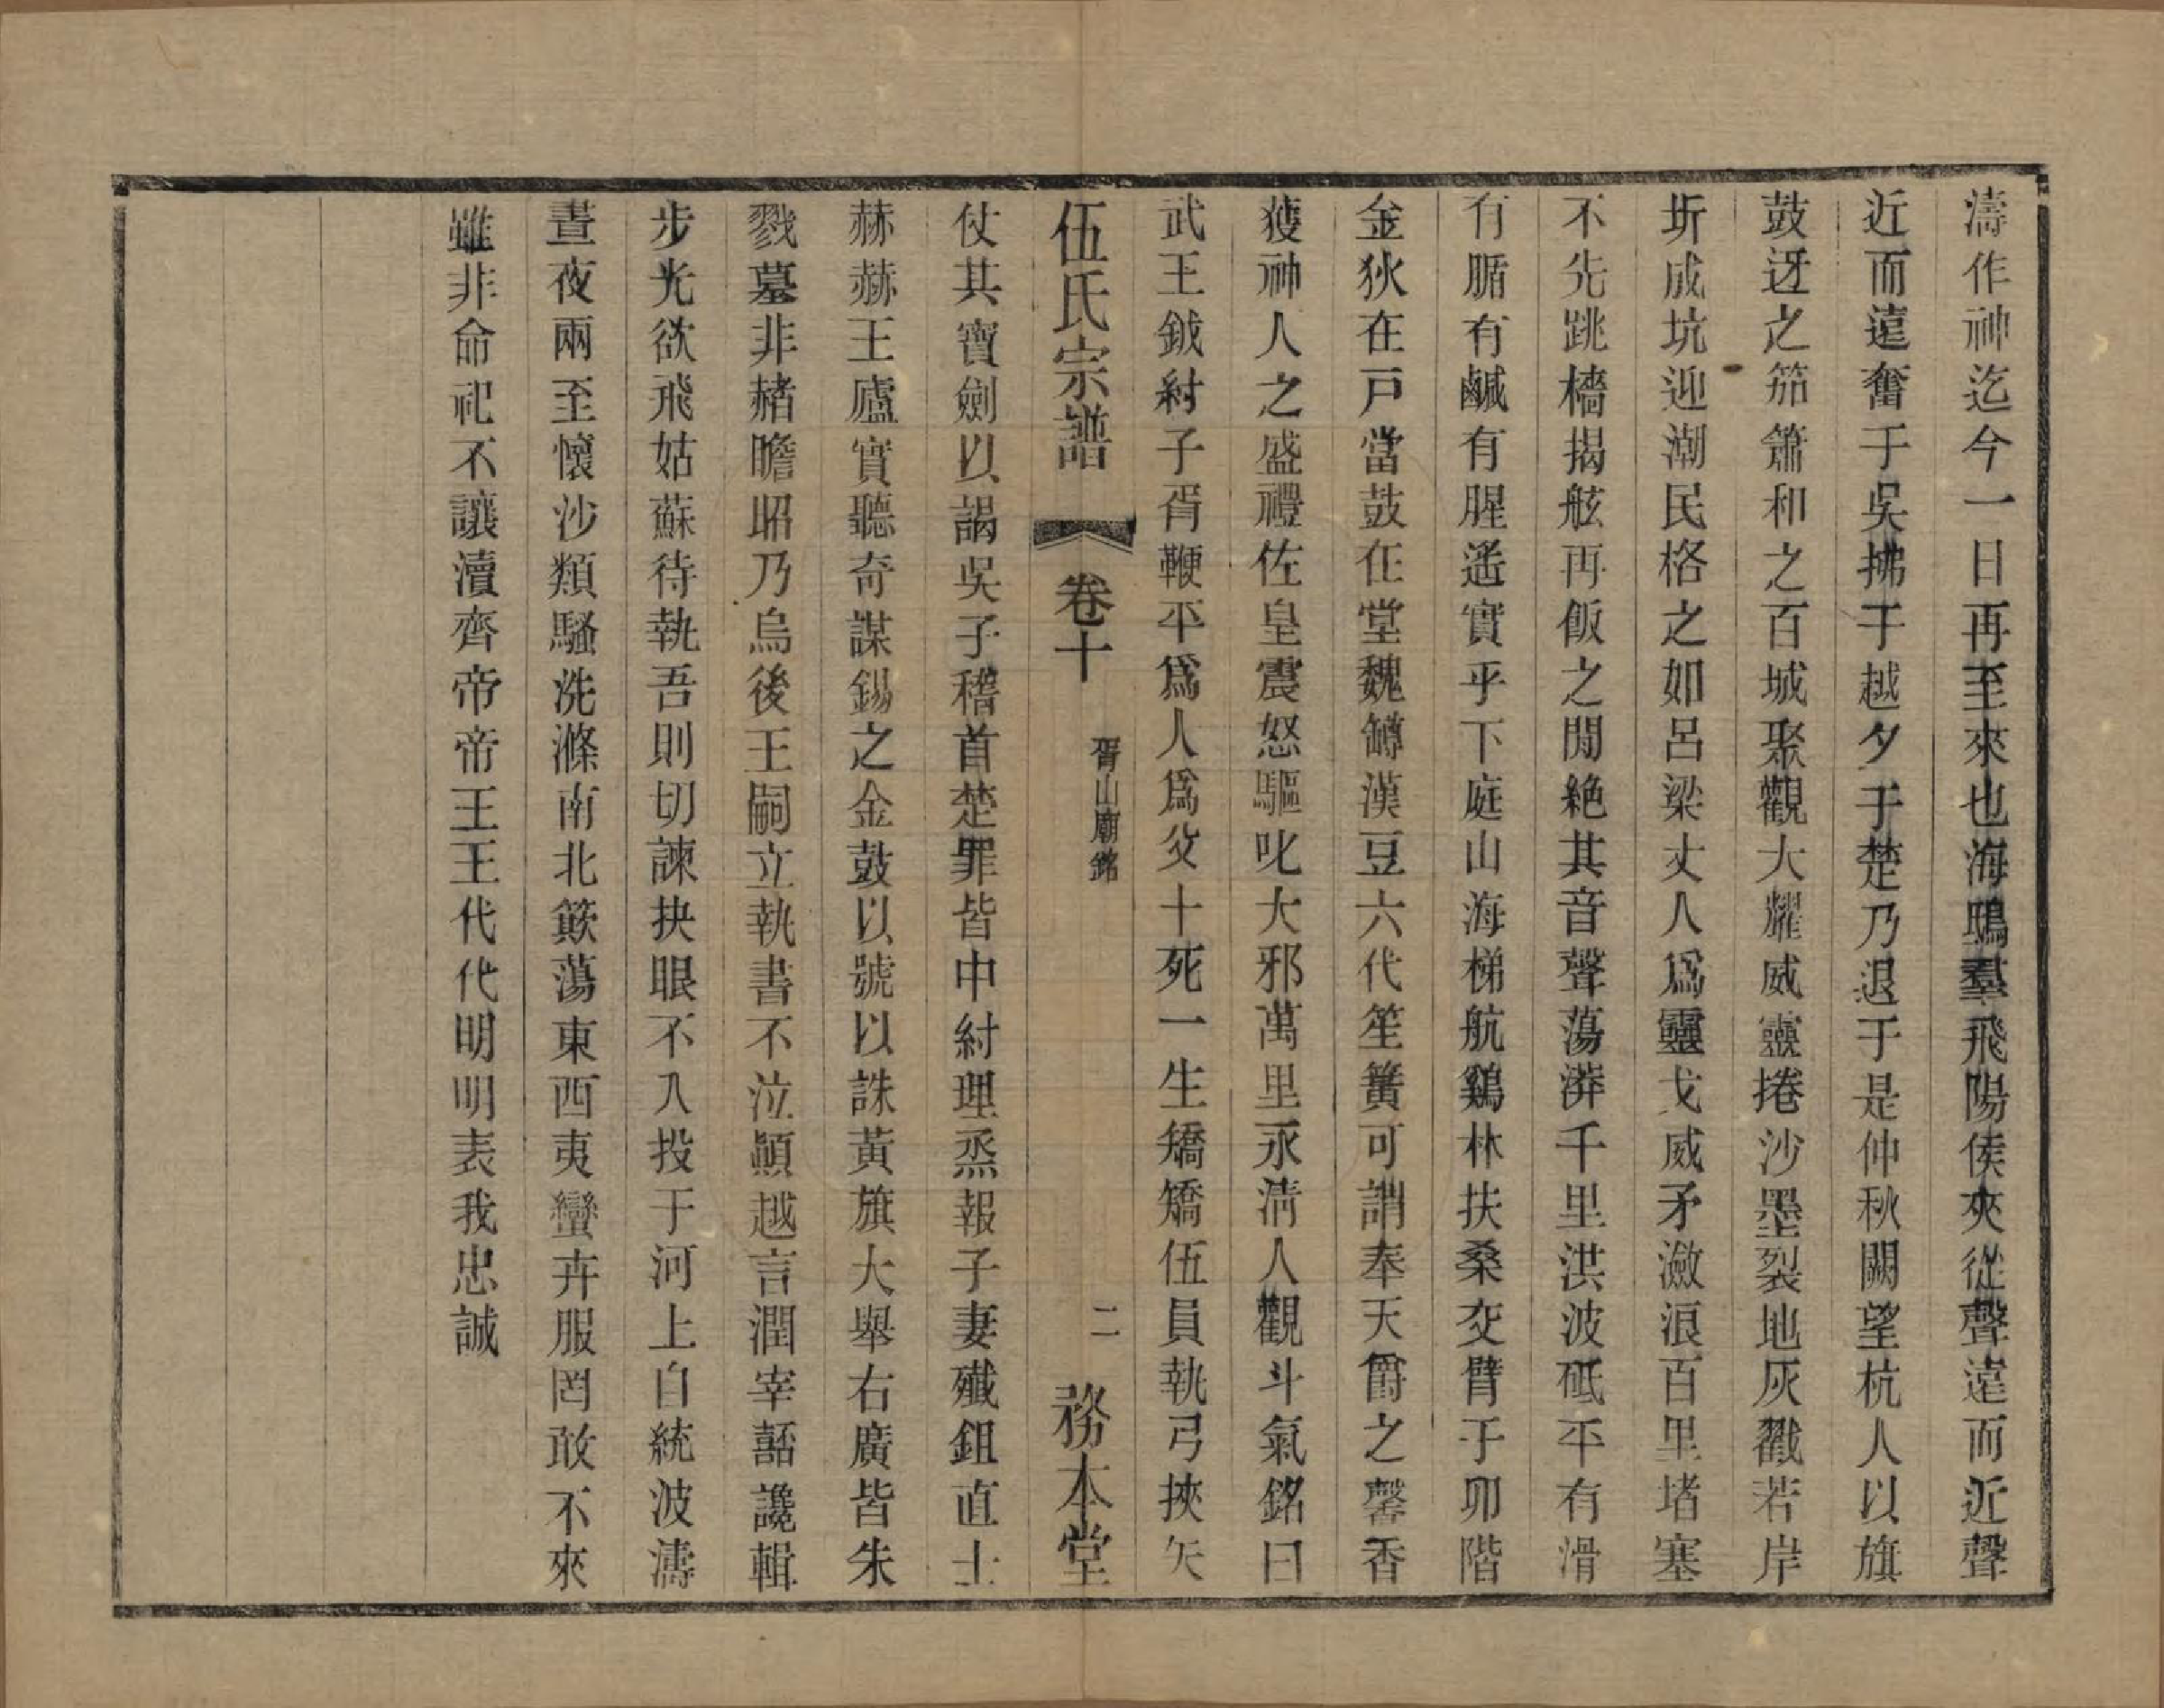 濤作神迄今一日再至來也海鴟羣飛陽侯夾從聲遠而近聲
近而遠奮于吳拂于越夕于楚乃退于是仲秋闕望杭人以旗
鼓迓之笳簫和之百城聚觀大耀威靈捲沙墨裂地灰戳若岸
坼成坑迎潮民格之如呂梁丈人爲靈戈威矛瀲浪百里堵塞
不先跳檣揭舷再飯之閒絶其音聲蕩漭千里洪波砥平有滑
有腯有鹹有腥遙實乎下庭山海梯航鷄林扶桑交臂于卯階
金狄在戸當鼓在堂魏罇漢豆六代笙簧可謂奉天爵之馨香
獲神人之盛禮佐皇震怒驅叱大邪萬里永淸人觀斗氣銘曰
武王鉞紂子胥鞭平爲人爲父十死一生矯矯伍員執弓挾矢
伍氏宗譜 卷十 胥山廟銘 二 務本堂
仗其寶劍以謁吳子稽首楚罪皆中紂理烝報子妻殲鉏直士
赫赫王廬實聽奇謀錫之金鼓以號以誅黃旗大舉右廣皆朱
戮墓非赭瞻昭乃烏後王嗣立執書不泣顚越言潤宰嚭讒輯
步光欲飛姑蘇待執吾則切諫抉眼不入投于河上自統波濤
晝夜兩至懷沙類騷洗滌南北簸蕩東西夷蠻卉服罔敢不來
雖非命祀不讓瀆齊帝帝王王代代明明表我忠誠